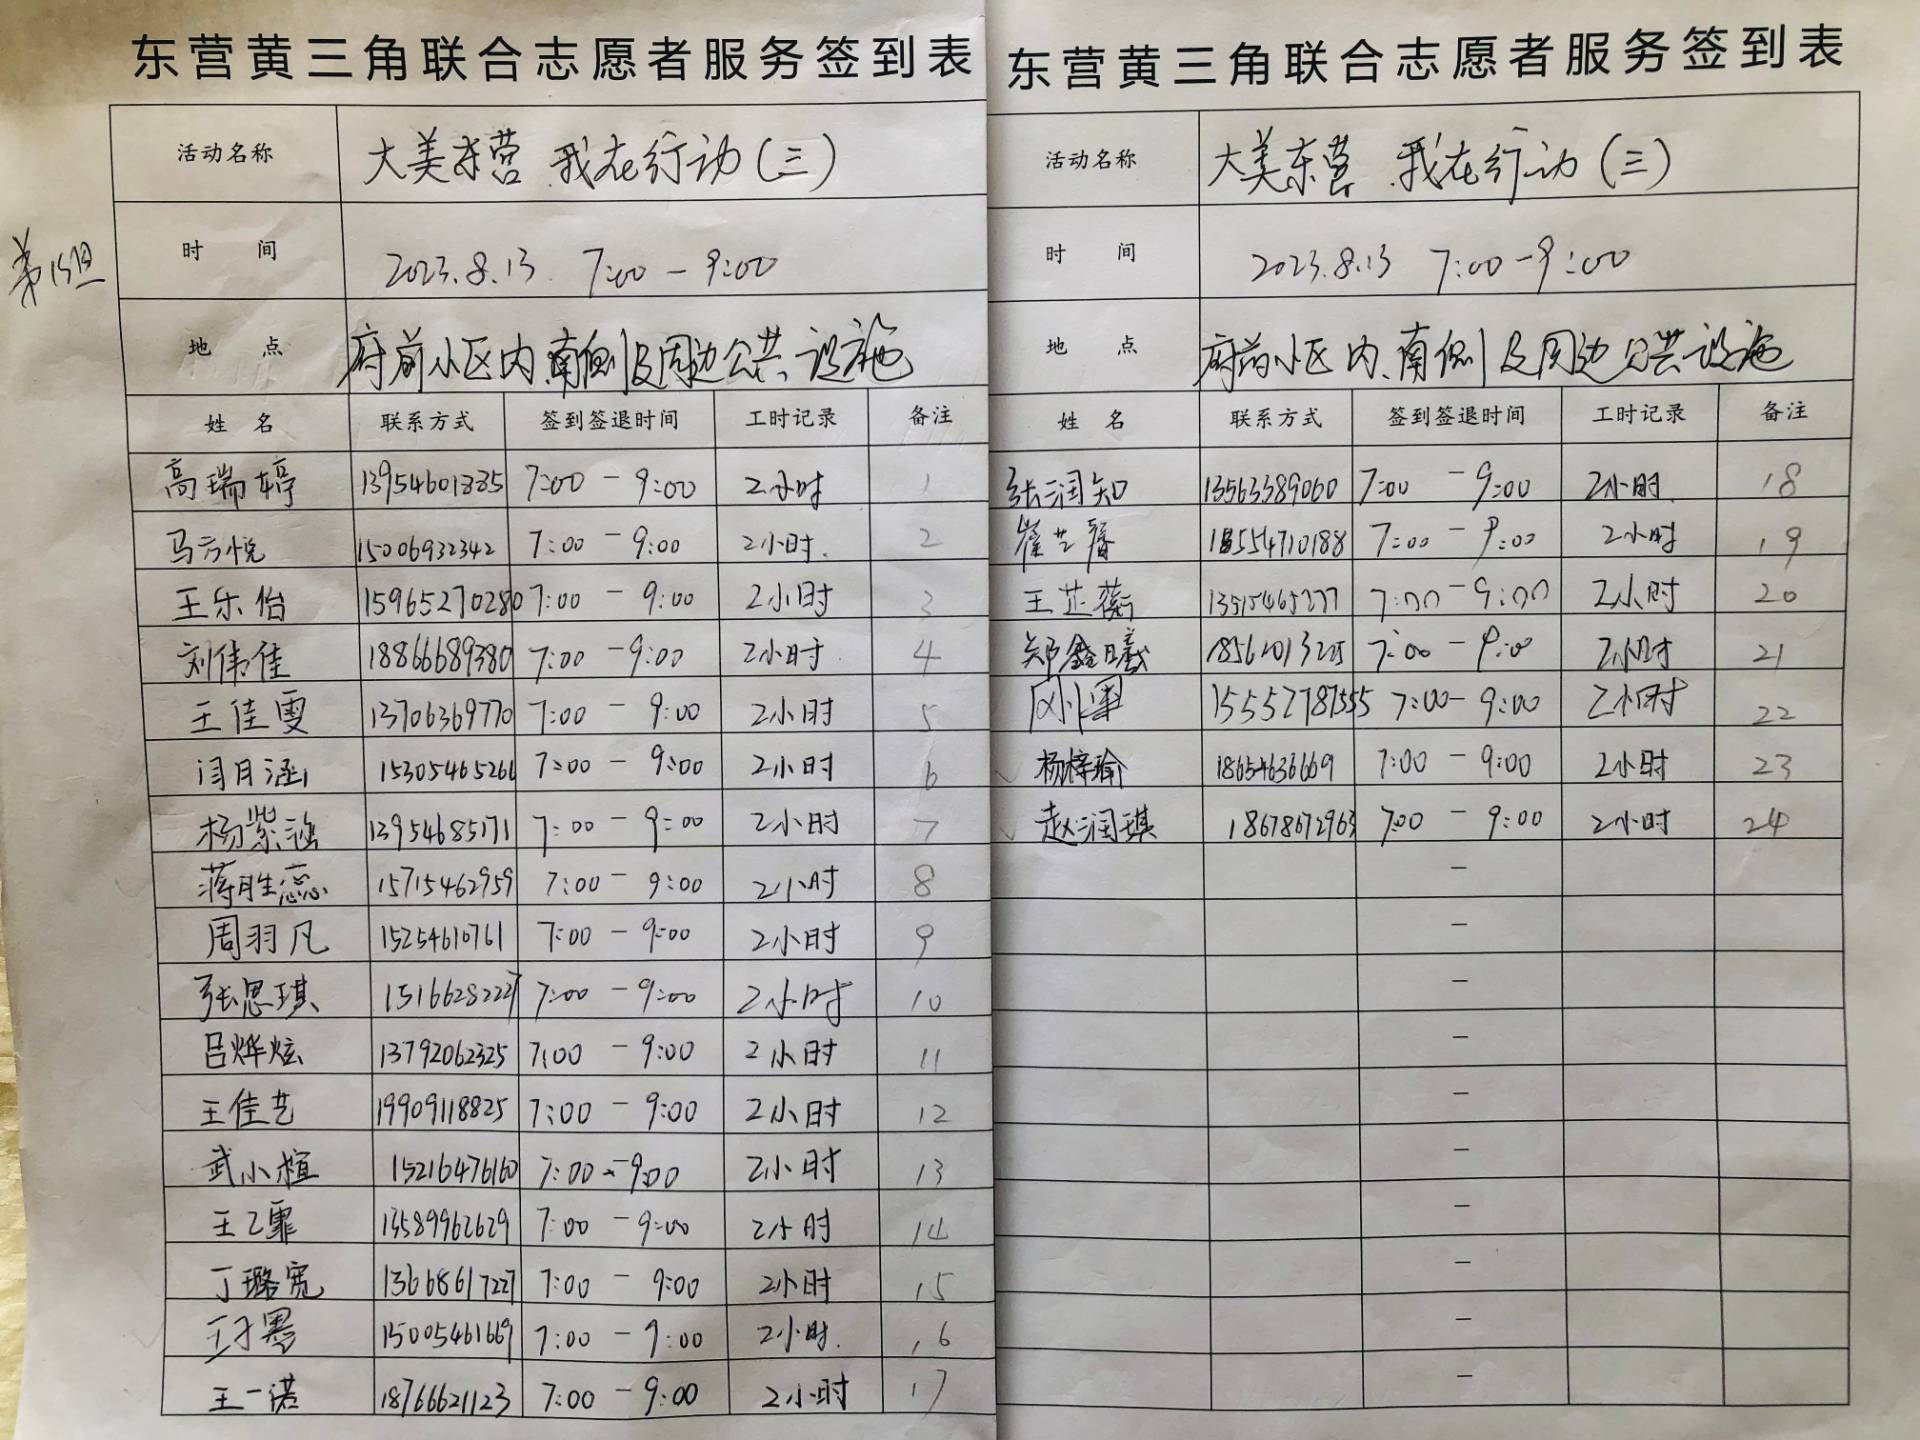 东营黄三角联合志愿者服务签到表
活动名称 大美东营 我在行动(三)
第15组
时 间 2023.8.13 7:00-9:00
地 点 府前小区内、南侧及周边公共设施
姓 名 联系方式 签到签退时间 工时记录 备注
高瑞婷 13954601885 7:00-9:00 2小时 1
马方悦 15006932342 7:00-9:00 2小时. 2
王乐怡 15965270280 7:00-9:00 2小时 3
刘伟佳 18866689380 7:00-9:00 2小时 4
王佳雯 13706369770 7:00-9:00 2小时 5
闫月涵 15305465261 7:00-9:00 2小时 6
杨紫涵 13954685171 7:00-9:00 2小时 7
蒋胜蕊 15715462959 7:00-9:00 2小时 8
周羽凡 15254610761 7:00-9:00 2小时 9
张思琪 15166282227 7:00-9:00 2小时 10
吕烨炫 13792062325 7:00-9:00 2小时 11
王佳艺 19909118825 7:00-9:00 2小时 12
武小楦 15216476160 7:00-9:00 2小时 13
王乙霏 13589962629 7:00-9:00 2小时 14
丁璐宽 13668617227 7:00-9:00 2小时 15
15005461669 7:00-9:00 2小时. 16
王一诺 18766621123 7:00-9:00 2小时 17
东营黄三角联合志愿者服务签到表
活动名称 大美东营 我在行动(三)
时 间 2023.8.13 7:00-9:00
地 点 府前小区内、南侧及周边公共设施
姓 名 联系方式 签到签退时间 工时记录 备注
张润知 13563389060 7:00-9:00 2小时. 18
崔艺馨 18554710188 7:00-9:00 2小时 19
王芷蘅 13515465277 7:00-9:00 2小时 20
郑鑫曦 7:00-9:00 2小时 21
15552787555 7:00-9:00 2小时 22
杨梓瑜 18654636669 7:00-9:00 2小时 23
赵润琪 18678672963 7:00-9:00 2小时 24
-
-
-
-
-
-
-
-
-
-